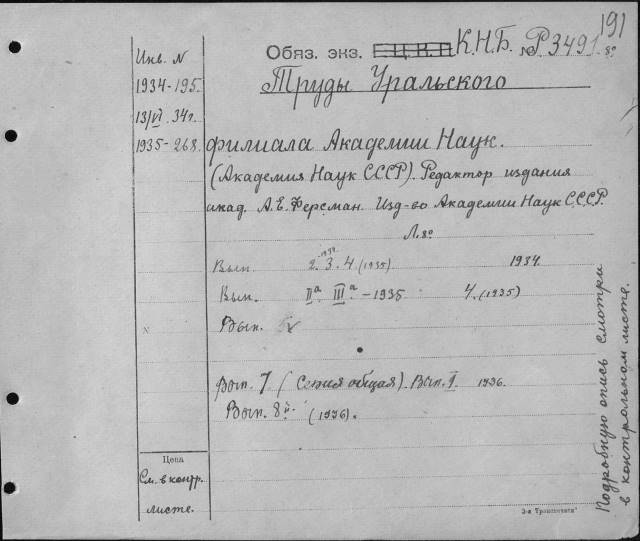 191
Обяз. экз. Ц.К.П. К.Н.Б. № Р3491 8°
Труды Уральского
филиала Академии Наук.
(Академия Наук СССР). Редактор издания
акад. А.Е.Ферсман. Изд-во Академии Наук СССР.
Л. 8°
1934
Вып. 2. 3. 4. (1935) 1934.
Вып. IIа IIIа - 1935 4. (1935)
Вып.
Вып. 7 (Серия общая). Вып. I. 1936.
Вып. 8й. (1936).
Инв. N
1934-195.
13/VI 34г.
1935-268.
Цена
См. в контр.
листе.
Подробную опись смотри
в контрольном листе.
3-я Транспечати